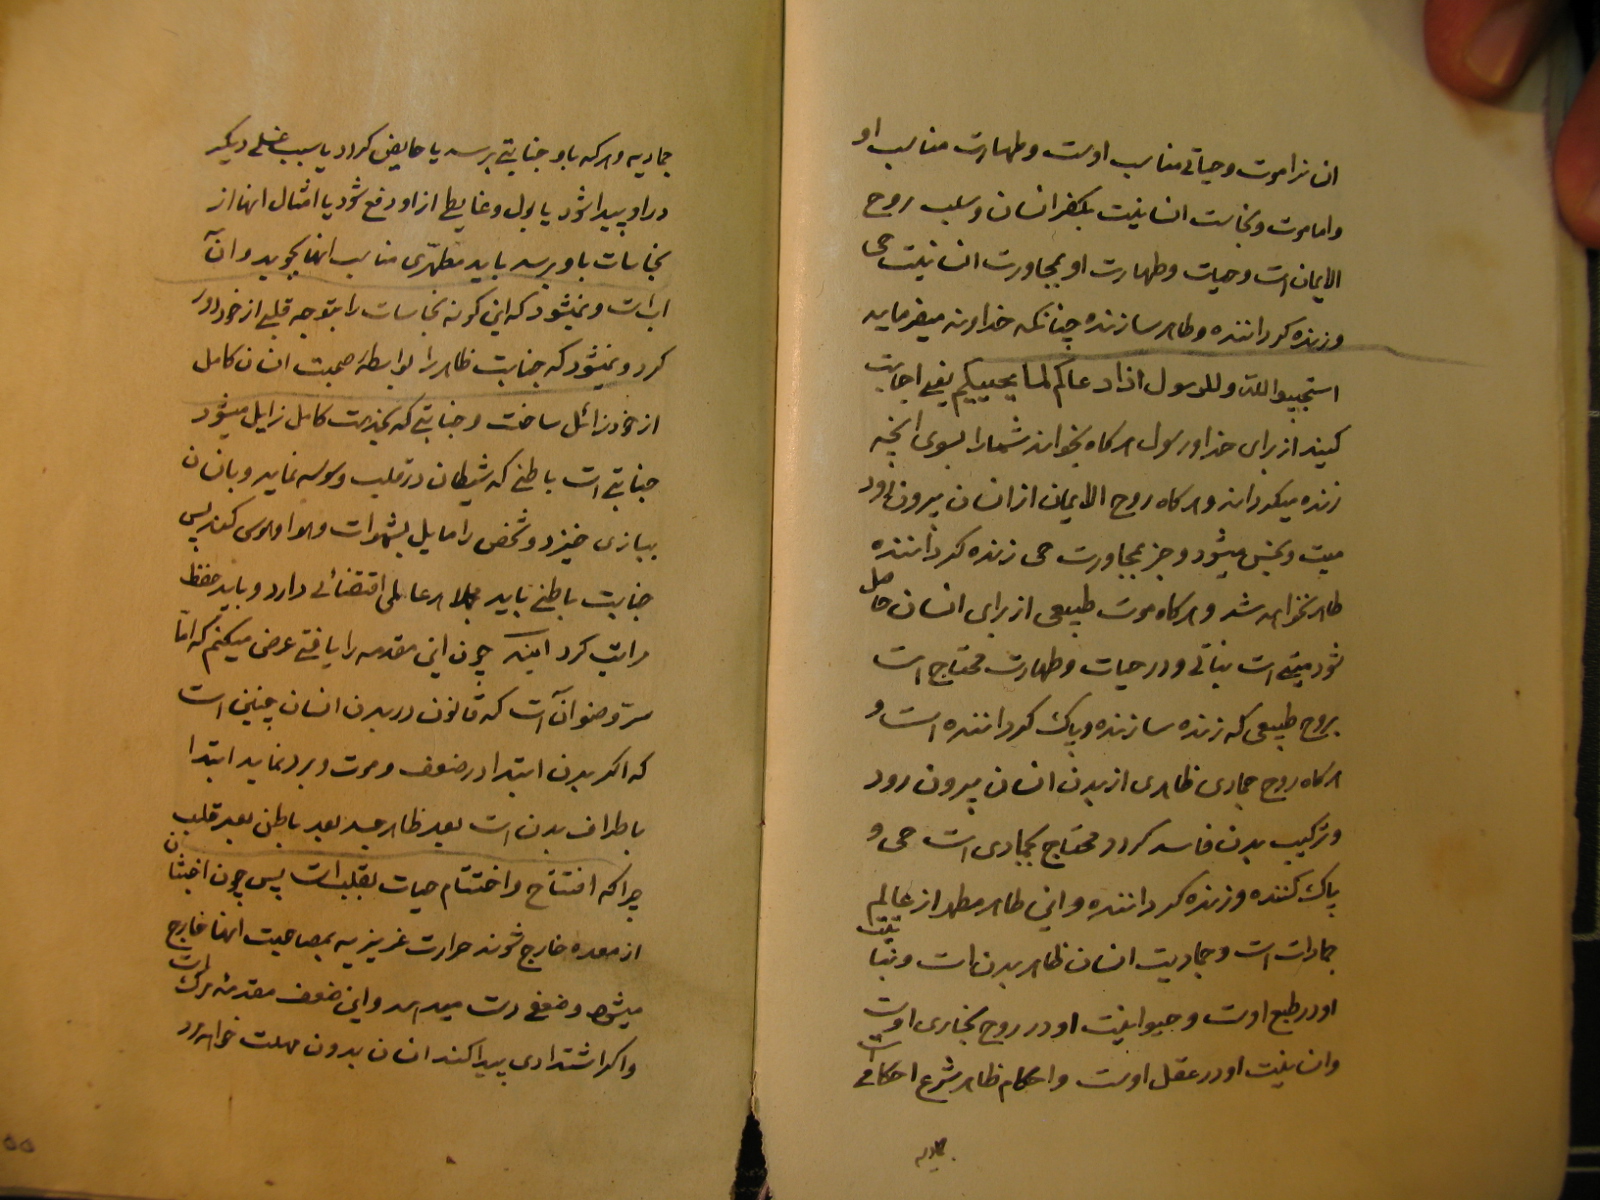 ان نرا موت و حیاتی مناسب اوست و طهارت مناسب او
و اما موت و نجاست انسانیت بکفر انسان و سلب روح
الایمان است و حیات و طهارت او بمجاورت انسانیت حی
و زنده گرداننده و طاهر سازنده چنانکه خداوند میفرماید
استجیبوا لله و للرسول اذا دعاکم لما یحییکم یعنی اجابت
کنید از برای خدا و رسول هرگاه بخواند شما را بسوی انچه
زنده میگرداند و هرگاه روح الایمان از انسان بیرون رود
میت و نجس میشود و جز بمجاورت حی زنده گرداننده
طاهر نخواهد شد و هرگاه موت طبیعی از برای انسان حاصل
شود میتی است نباتی و در حیات و طهارت محتاج است
بروح طبیعی که زنده سازنده و پاک گرداننده است و
هرگاه روح جمادی ظاهری از بدن انسان بیرون رود
و ترکیب بدن فاسد گردد محتاج بجمادی است حی و
پاک کننده و زنده گرداننده و این طاهر مطهر از عالم
جمادات است و جمادیت انسان ظاهر بدن است و نباتیت
او در طبع اوست و حیوانیت او در روح بخاری اوست
و انسانیت او در عقل اوست و احکام ظاهر شرع احکامی است
جمادیه
جمادیه و هرکه باو جنابتی برسد یا حایض گردد یا سبب غسلی دیگر
در او پیدا شود یا بول و غایطی از او دفع شود یا امثال انها از
نجاسات باو برسد باید مطهّری مناسب انها بجوید و آن
اب است و نمیشود که این گونه نجاسات را بتوجه قلبی از خود دور
کرد و نمیشود که جنابت ظاهر را بواسطه صحبت انسان کامل
از خود زائل ساخت و جنابتی که بخدمت کامل زایل میشود
جنابتی است باطنی که شیطان در قلب وسوسه نماید و بانسان
ببازی خیزد و شخص را مایل بشهوات و هوا و هوس کند پس
جنابت باطنی باید هر عالمی اقتضائی دارد و باید حفظ
مراتب کرد چون این مقدمه را یافتی عرض میکنم که امّا
سرّ وضو آنست که قانون در بدن انسان چنین است
که اگر بدن ابتدا در ضعف و موت و برد نماید ابتدا
باطراف بدن است بعد ظاهر جسد بعد باطن بعد قلب
چرا که افتتاح و اختتام حیات بقلب است پس چون اخبثان
از معده خارج شوند حرارت غریزیه بمصاحبت انها خارج
میشود و ضعفی دست میدهد و این ضعف مقدمه مرگ است
و اگر اشتدادی پیدا کند انسان بدون مهلت خواهد مرد